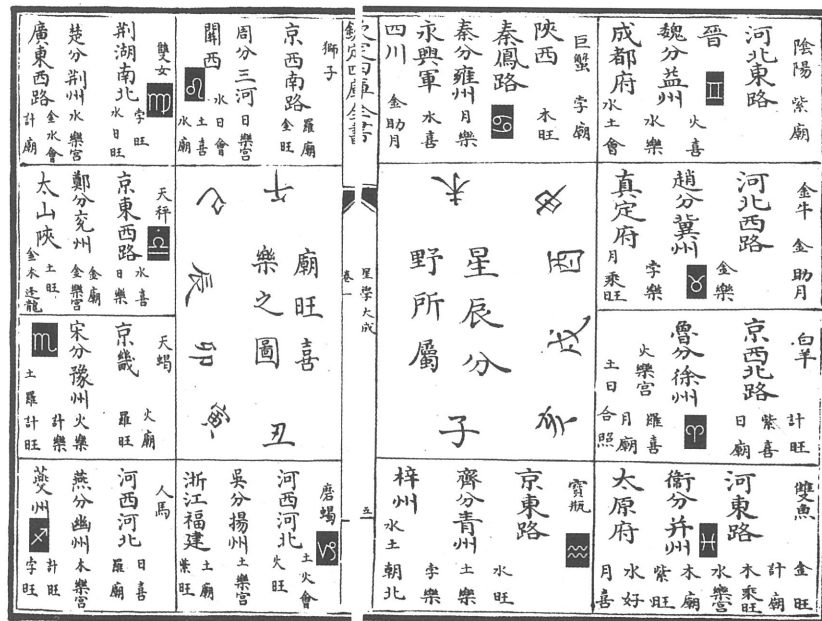 陰陽 紫廟
河北東路
晉 ♊ 火喜
魏分益州 水樂
成都府 水土會
巨蟹 孛廟
陝西 木旺
秦鳳路 ♋
秦分雍州 月樂
永興軍 水喜
四川 金助月
金牛 金助月
河北西路
趙分冀州 ♉ 金樂
真定府 孛樂
月乘旺
白羊 計旺
京西北路 紫喜 日廟
魯分徐州 ♈
火樂宮 羅喜 月廟
土日合照
雙魚 金旺 計廟
河東路 木乘旺 水樂宮
衞分并州 ♓ 木廟 紫旺
太原府 水好 月喜
寶瓶 ♒
京東路 水旺
齊分青州 土樂 孛樂
梓州 水土朝北
星辰分
野所屬
未 申 酉 戌 亥 子
欽定四庫全書
星學大成
卷一
五
獅子
京西南路 羅廟 金旺
周分三河 日樂宮
關西 ♌ 水日會 土喜 水廟
雙女 ♍
荆湖南北 孛旺 水日旺
楚分荆州 水樂宮
廣東西路 金水會 計廟
天秤 ♎
京東西路 水喜 日樂
鄭分兖州 金廟 金樂宮
太山陝 土旺 金木逢龍
天蝎 火廟
京畿 羅旺
宋分豫州 火樂 計樂
♏ 土羅計旺
人馬
河西河北 日喜 羅廟
燕分幽州 木樂宮
♐ 計旺 孛旺
磨蝎 ♑ 土火會
河西河北 火旺
吳分揚州 土樂宮
浙江福建 土廟 紫旺
廟旺喜
樂之圖
午 巳 辰 卯 寅 丑